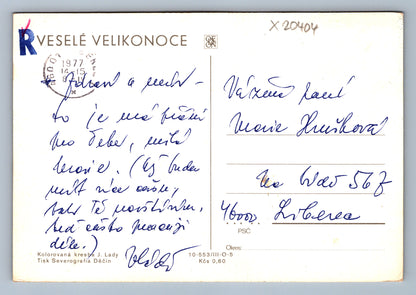 X 20404
R VESELÉ VELIKONOCE
1977
Zdraví a
to je má přání
pro Tebe, milá
Marie. (Až budu
mít více času,
Tě navštívím,
teď často pracuji
déle.)
Vážená paní
Marie
Na 567
46000 Liberec
PSČ
Okres:
Kolorovaná kresba J. Lady
Tisk Severografia Děčín
10-553/III-O-5
Kčs 0,60